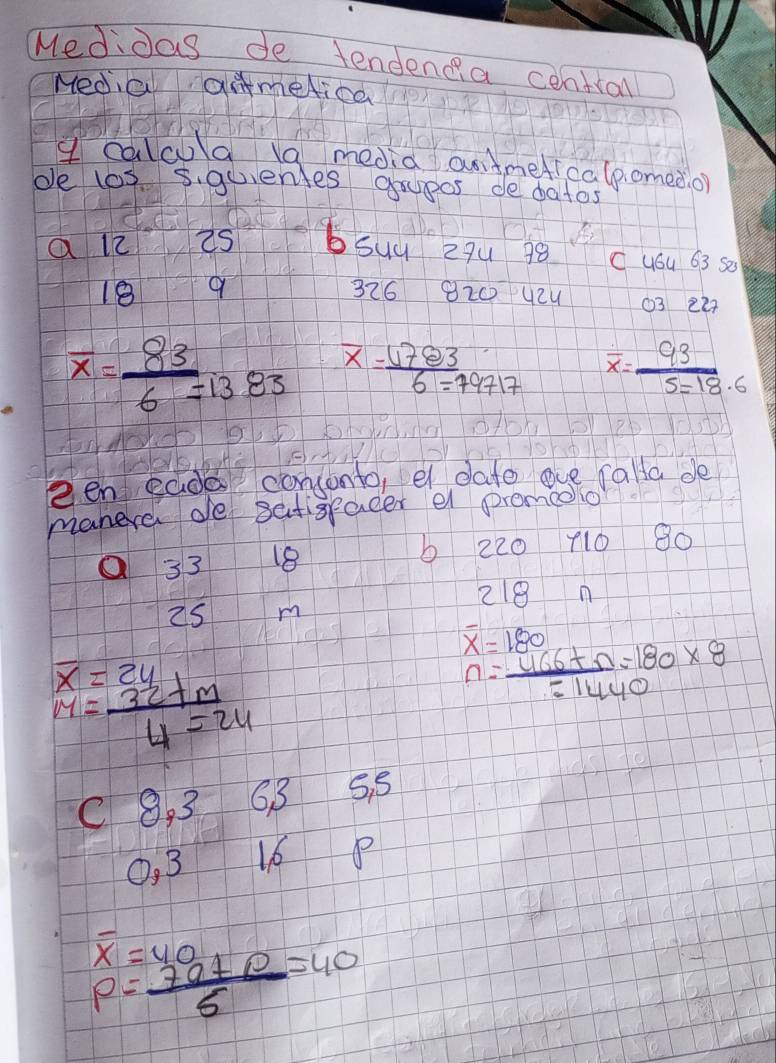 Medidas de tendencia central
Media aritmetica
1 calcula la media aritmetica (promedio)
de los siguientes grupos de datos
a 12 25 b 544 274 78 c 464 63 
18 9 326 820 424 03 227
x̄ = 83/6 = 13 83 x̄ = 4783/6 = 79717 x̄ = 93/5 = 18.6
2 en cada conjunto, el dato que falta de
manera de satisfacer el promedio
a 33 18 b 220 710 80
25 m 218 n
x̄ = 24 x̄ = 180
M = 32 + m/4 = 24 n = 466 + n = 180 x 8
= 1440
c 8,3 6,3 5,5
0,3 1,6 p
x̄ = 40
p = 70 + p/6 = 40